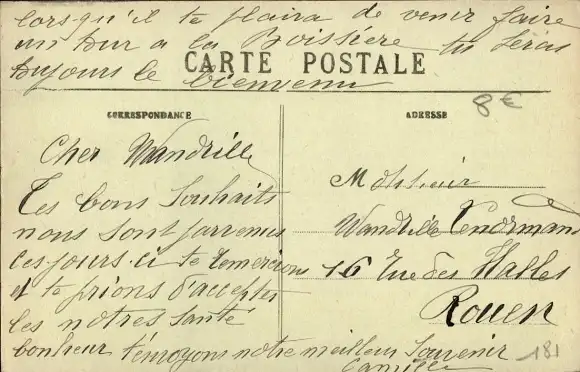 lorsqu'il te plaira de venir faire
un tour a la Boissière tu seras
toujours le bienvenu
CARTE POSTALE
8€
CORRESPONDANCE
ADRESSE
Cher Wandrille
Tes bons souhaits
nous sont parvenus
ces jours-ci te remercions
et te prions d'accepter
les notres santé
bonheur t'envoyons notre meilleur souvenir
Camille
Monsieur
Wandrille Lenormand
16 Rue des Halles
Rouen
181